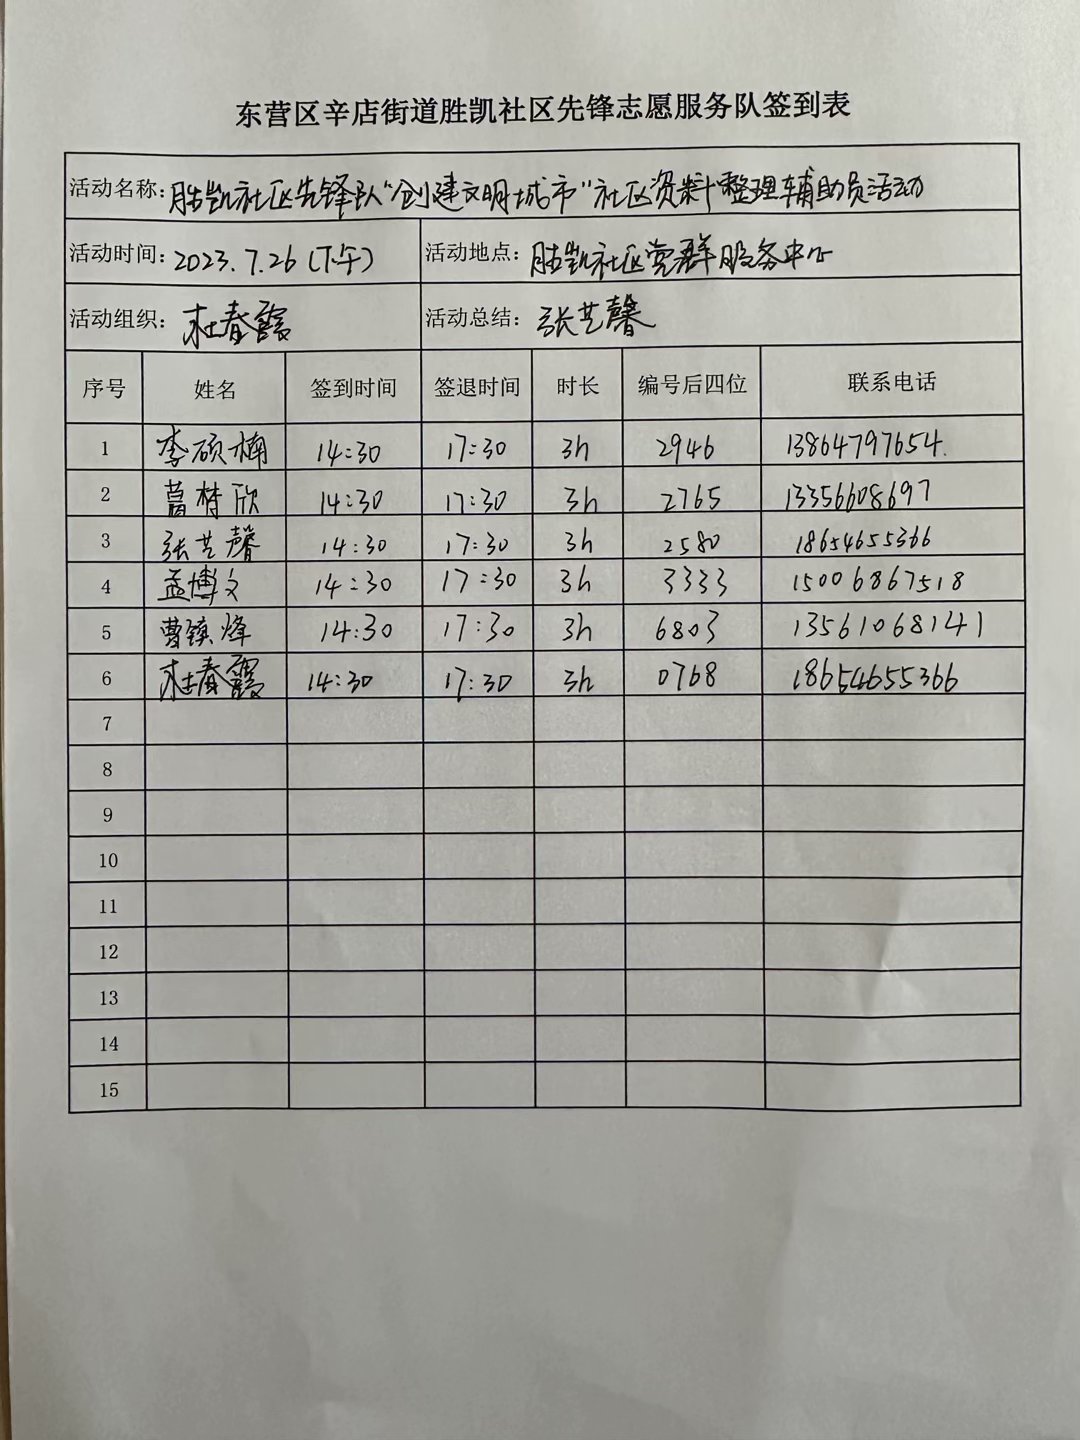 东营区辛店街道胜凯社区先锋志愿服务队签到表
活动名称：胜凯社区先锋队“创建文明城市”社区资料整理辅助员活动
活动时间：2023.7.26（下午） 活动地点：胜凯社区党群服务中心
活动组织：杜春霞 活动总结：张艺馨
序号 姓名 签到时间 签退时间 时长 编号后四位 联系电话
1 李硕楠 14:30 17:30 3h 2946 13864797654.
2 14:30 17:30 3h 2765 13356608697
3 张艺馨 14:30 17:30 3h 2580 18654655366
4 孟博文 14:30 17:30 3h 3333 15006867518
5 曹镇烽 14:30 17:30 3h 6803 13561068141
6 杜春霞 14:30 17:30 3h 0768 18654655366
7
8
9
10
11
12
13
14
15